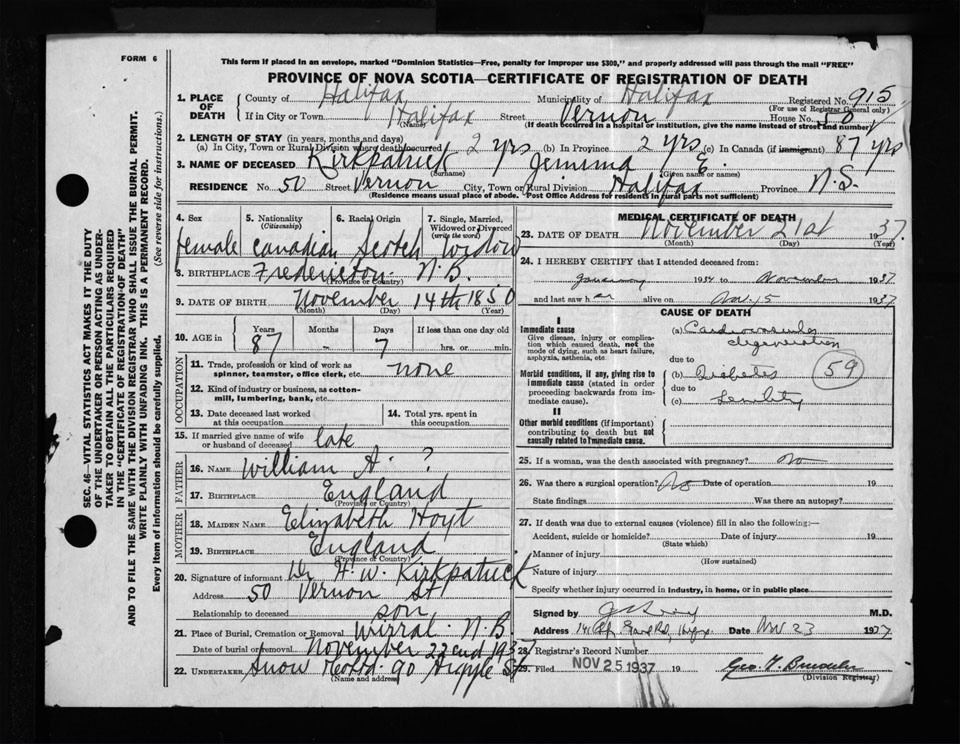 FORM 6
This form if placed in an envelope, marked "Dominion Statistics—Free, penalty for improper use $300," and properly addressed will pass through the mail "FREE"
PROVINCE OF NOVA SCOTIA—CERTIFICATE OF REGISTRATION OF DEATH
1. PLACE OF DEATH County of Halifax Municipality of Halifax Registered No. 915
(For use of Registrar General only)
If in City or Town Halifax Street Vernon House No. 50
(Name) (If death occurred in a hospital or institution, give the name instead of street and number)
2. LENGTH OF STAY (in years, months and days)
(a) In City, Town or Rural Division where death occurred 2 yrs (b) In Province 2 yrs (c) In Canada (if immigrant) 87 yrs
3. NAME OF DECEASED Kirkpatrick Jemima E.
(Surname) (Given name or names)
RESIDENCE No. 50 Street Vernon City, Town or Rural Division Halifax Province N.S.
(Residence means usual place of abode. Post Office Address for residents in rural parts not sufficient)
SEC. 46—VITAL STATISTICS ACT MAKES IT THE DUTY
OF THE UNDERTAKER OR PERSON ACTING AS UNDER-
TAKER TO OBTAIN ALL THE PARTICULARS REQUIRED
IN THE "CERTIFICATE OF REGISTRATION OF DEATH"
AND TO FILE THE SAME WITH THE DIVISION REGISTRAR WHO SHALL ISSUE THE BURIAL PERMIT.
WRITE PLAINLY WITH UNFADING INK. THIS IS A PERMANENT RECORD.
Every item of information should be carefully supplied. (See reverse side for instructions.)
4. Sex 5. Nationality 6. Racial Origin 7. Single, Married,
(Citizenship) Widowed or Divorced
(write the word)
female Canadian Scotch Widow
8. BIRTHPLACE Fredericton N.B.
(Province or Country)
9. DATE OF BIRTH November 14th 1850
(Month) (Day) (Year)
10. AGE in Years Months Days If less than one day old
87 - 7 hrs. or min.
OCCUPATION
11. Trade, profession or kind of work as
spinner, teamster, office clerk, etc. none
12. Kind of industry or business, as cotton-
mill, lumbering, bank, etc.
13. Date deceased last worked
at this occupation
14. Total yrs. spent in
this occupation
15. If married give name of wife
or husband of deceased late
FATHER
16. NAME William A. ?
17. BIRTHPLACE England
(Province or Country)
MOTHER
18. MAIDEN NAME Elizabeth Hoyt
19. BIRTHPLACE England
(Province or Country)
20. Signature of informant Dr H. W. Kirkpatrick
Address 50 Vernon St
Relationship to deceased son
21. Place of Burial, Cremation or Removal Wirral N.B.
Date of burial or removal November 22end 193
22. UNDERTAKER Snow 90 Argyle St
(Name and address)
MEDICAL CERTIFICATE OF DEATH
23. DATE OF DEATH November 21st 1937
(Month) (Day) (Year)
24. I HEREBY CERTIFY that I attended deceased from:
January 1934 to November 1937
and last saw her alive on Nov. 15 1937
CAUSE OF DEATH
I
Immediate cause
Give disease, injury or complica-
tion which caused death, not the
mode of dying, such as heart failure,
asphyxia, asthenia, etc.
(a) Cardiovascular
degeneration
due to
Morbid conditions, if any, giving rise to
immediate cause (stated in order
proceeding backwards from im-
mediate cause).
(b) Diabetes 59
due to
(c) Senility
II
Other morbid conditions (if important)
contributing to death but not
causally related to immediate cause.
25. If a woman, was the death associated with pregnancy? No
26. Was there a surgical operation? No Date of operation 19
State findings Was there an autopsy?
27. If death was due to external causes (violence) fill in also the following:—
Accident, suicide or homicide? Date of injury 19
(State which)
Manner of injury
(How sustained)
Nature of injury
Specify whether injury occurred in industry, in home, or in public place
Signed by M.D.
Address Date Nov 23 1937
28. Registrar's Record Number
29. Filed NOV 25 1937 19
(Division Registrar)